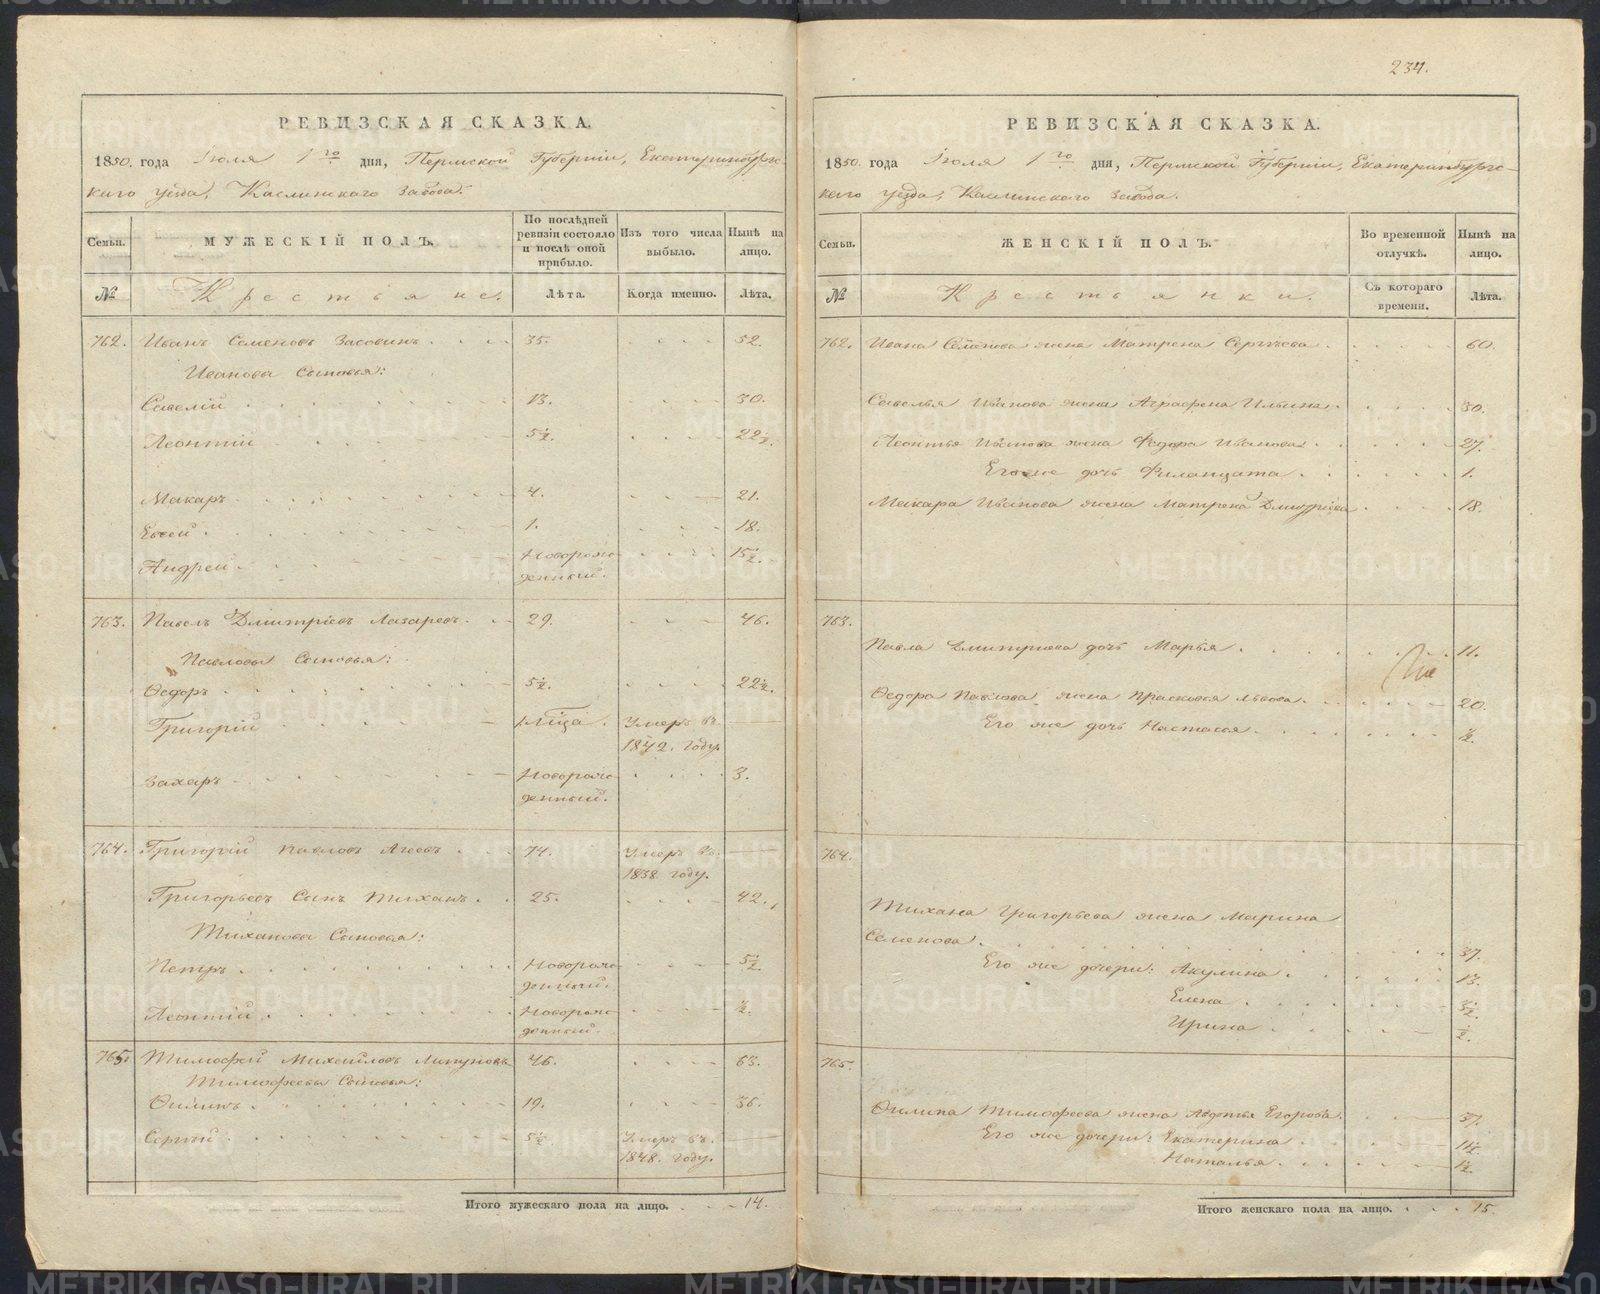 234.
РЕВИЗСКАЯ СКАЗКА.
1850. года Іюля 1го дня, Пермской Губерніи, Екатеринбургс-
каго уѣзда, Каслинскаго завода.
Семьи. МУЖЕСКІЙ ПОЛЪ. По послѣдней ревизіи состояло и послѣ оной прибыло. Изъ того числа выбыло. Нынѣ на лицо.
№ Крестьяне. Лѣта. Когда именно. Лѣта.
762. Иванъ Семеновъ Засовинъ 35. 52.
Ивановы Сыновья:
Савелій 13. 30.
Леонтій 5½. 22½.
Макаръ 4. 21.
Евсей 1. 18.
Андрей Новорож- 15½.
денный.
763. Павелъ Дмитріевъ Лазаревъ 29. 46.
Павловы Сыновья:
Ѳедоръ 5½. 22½.
Григорій Умеръ въ
1842. году.
Захаръ Новорож- 3.
денный.
764. Григорій Павловъ Агеевъ 74. Умеръ въ
1838 году.
Григорьевъ Сынъ Тиханъ 25. 42.
Тихановы Сыновья:
Петръ Новорож- 5½
денный.
Леонтій Новорож- ½.
денный.
765. Тимофей Михайловъ Липуновъ 46. 63.
Тимофеевы Сыновья:
Ѳилипъ 19. 36.
Сергѣй 5½ Умеръ въ
1848. году.
Итого мужескаго пола на лицо. 14.
РЕВИЗСКАЯ СКАЗКА.
1850. года Іюля 1го дня, Пермской Губерніи, Екатеринбургс-
каго уѣзда, Каслинскаго завода.
Семьи. ЖЕНСКІЙ ПОЛЪ. Во временной отлучкѣ. Нынѣ на лицо.
№ Крестьянки. Съ котораго времени. Лѣта.
762. Ивана Семенова жена Матрена Сергѣева 60.
Савелья Иванова жена Аграфена Ильина 30.
Леонтья Иванова жена Федора Иванова 27.
Его же дочь Филанцата 1.
Макара Иванова жена Матрена Дмитріева 18.
763.
Павла Дмитріева дочь Марья 11.
Ѳедора Павлова жена Прасковья Львова 20.
Его же дочь Настасья ½.
764.
Тихана Григорьева жена Марина
Семенова 37.
Его же дочери: Акулина 13.
Елена 3½.
Ирина ½.
765.
Ѳилипа Тимофеева жена Авдотья Егорова 37.
Его же дочери: Екатерина
Наталья
Итого женскаго пола на лицо. 15.
METRIKI.GASO-URAL.RU